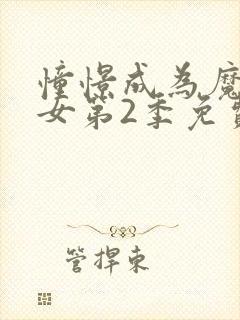 憧憬成為魔
女第2季免費
管捍東